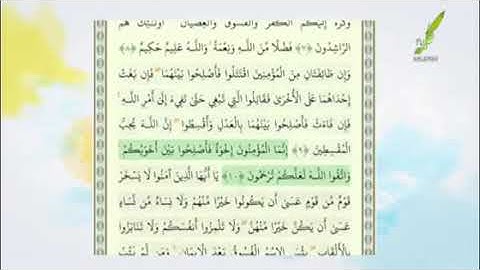 وَكَرَّهَ إِلَيْكُمُ الْكُفْرَ وَالْفُسُوقَ وَالْعِصْيَانَ أُولَٰئِكَ هُمُ
الرَّاشِدُونَ ﴿٧﴾ فَضْلًا مِّنَ اللَّهِ وَنِعْمَةً وَاللَّهُ عَلِيمٌ حَكِيمٌ ﴿٨﴾
وَإِن طَائِفَتَانِ مِنَ الْمُؤْمِنِينَ اقْتَتَلُوا فَأَصْلِحُوا بَيْنَهُمَا فَإِن بَغَتْ
إِحْدَاهُمَا عَلَى الْأُخْرَىٰ فَقَاتِلُوا الَّتِي تَبْغِي حَتَّىٰ تَفِيءَ إِلَىٰ أَمْرِ اللَّهِ
فَإِن فَاءَتْ فَأَصْلِحُوا بَيْنَهُمَا بِالْعَدْلِ وَأَقْسِطُوا إِنَّ اللَّهَ يُحِبُّ
الْمُقْسِطِينَ ﴿٩﴾ إِنَّمَا الْمُؤْمِنُونَ إِخْوَةٌ فَأَصْلِحُوا بَيْنَ أَخَوَيْكُمْ
وَاتَّقُوا اللَّهَ لَعَلَّكُمْ تُرْحَمُونَ ﴿١٠﴾ يَا أَيُّهَا الَّذِينَ آمَنُوا لَا يَسْخَرْ
قَوْمٌ مِّن قَوْمٍ عَسَىٰ أَن يَكُونُوا خَيْرًا مِّنْهُمْ وَلَا نِسَاءٌ مِّن نِّسَاءٍ
عَسَىٰ أَن يَكُنَّ خَيْرًا مِّنْهُنَّ وَلَا تَلْمِزُوا أَنفُسَكُمْ وَلَا تَنَابَزُوا
بِالْأَلْقَابِ بِئْسَ الِاسْمُ الْفُسُوقُ بَعْدَ الْإِيمَانِ وَمَن لَّمْ يَتُبْ